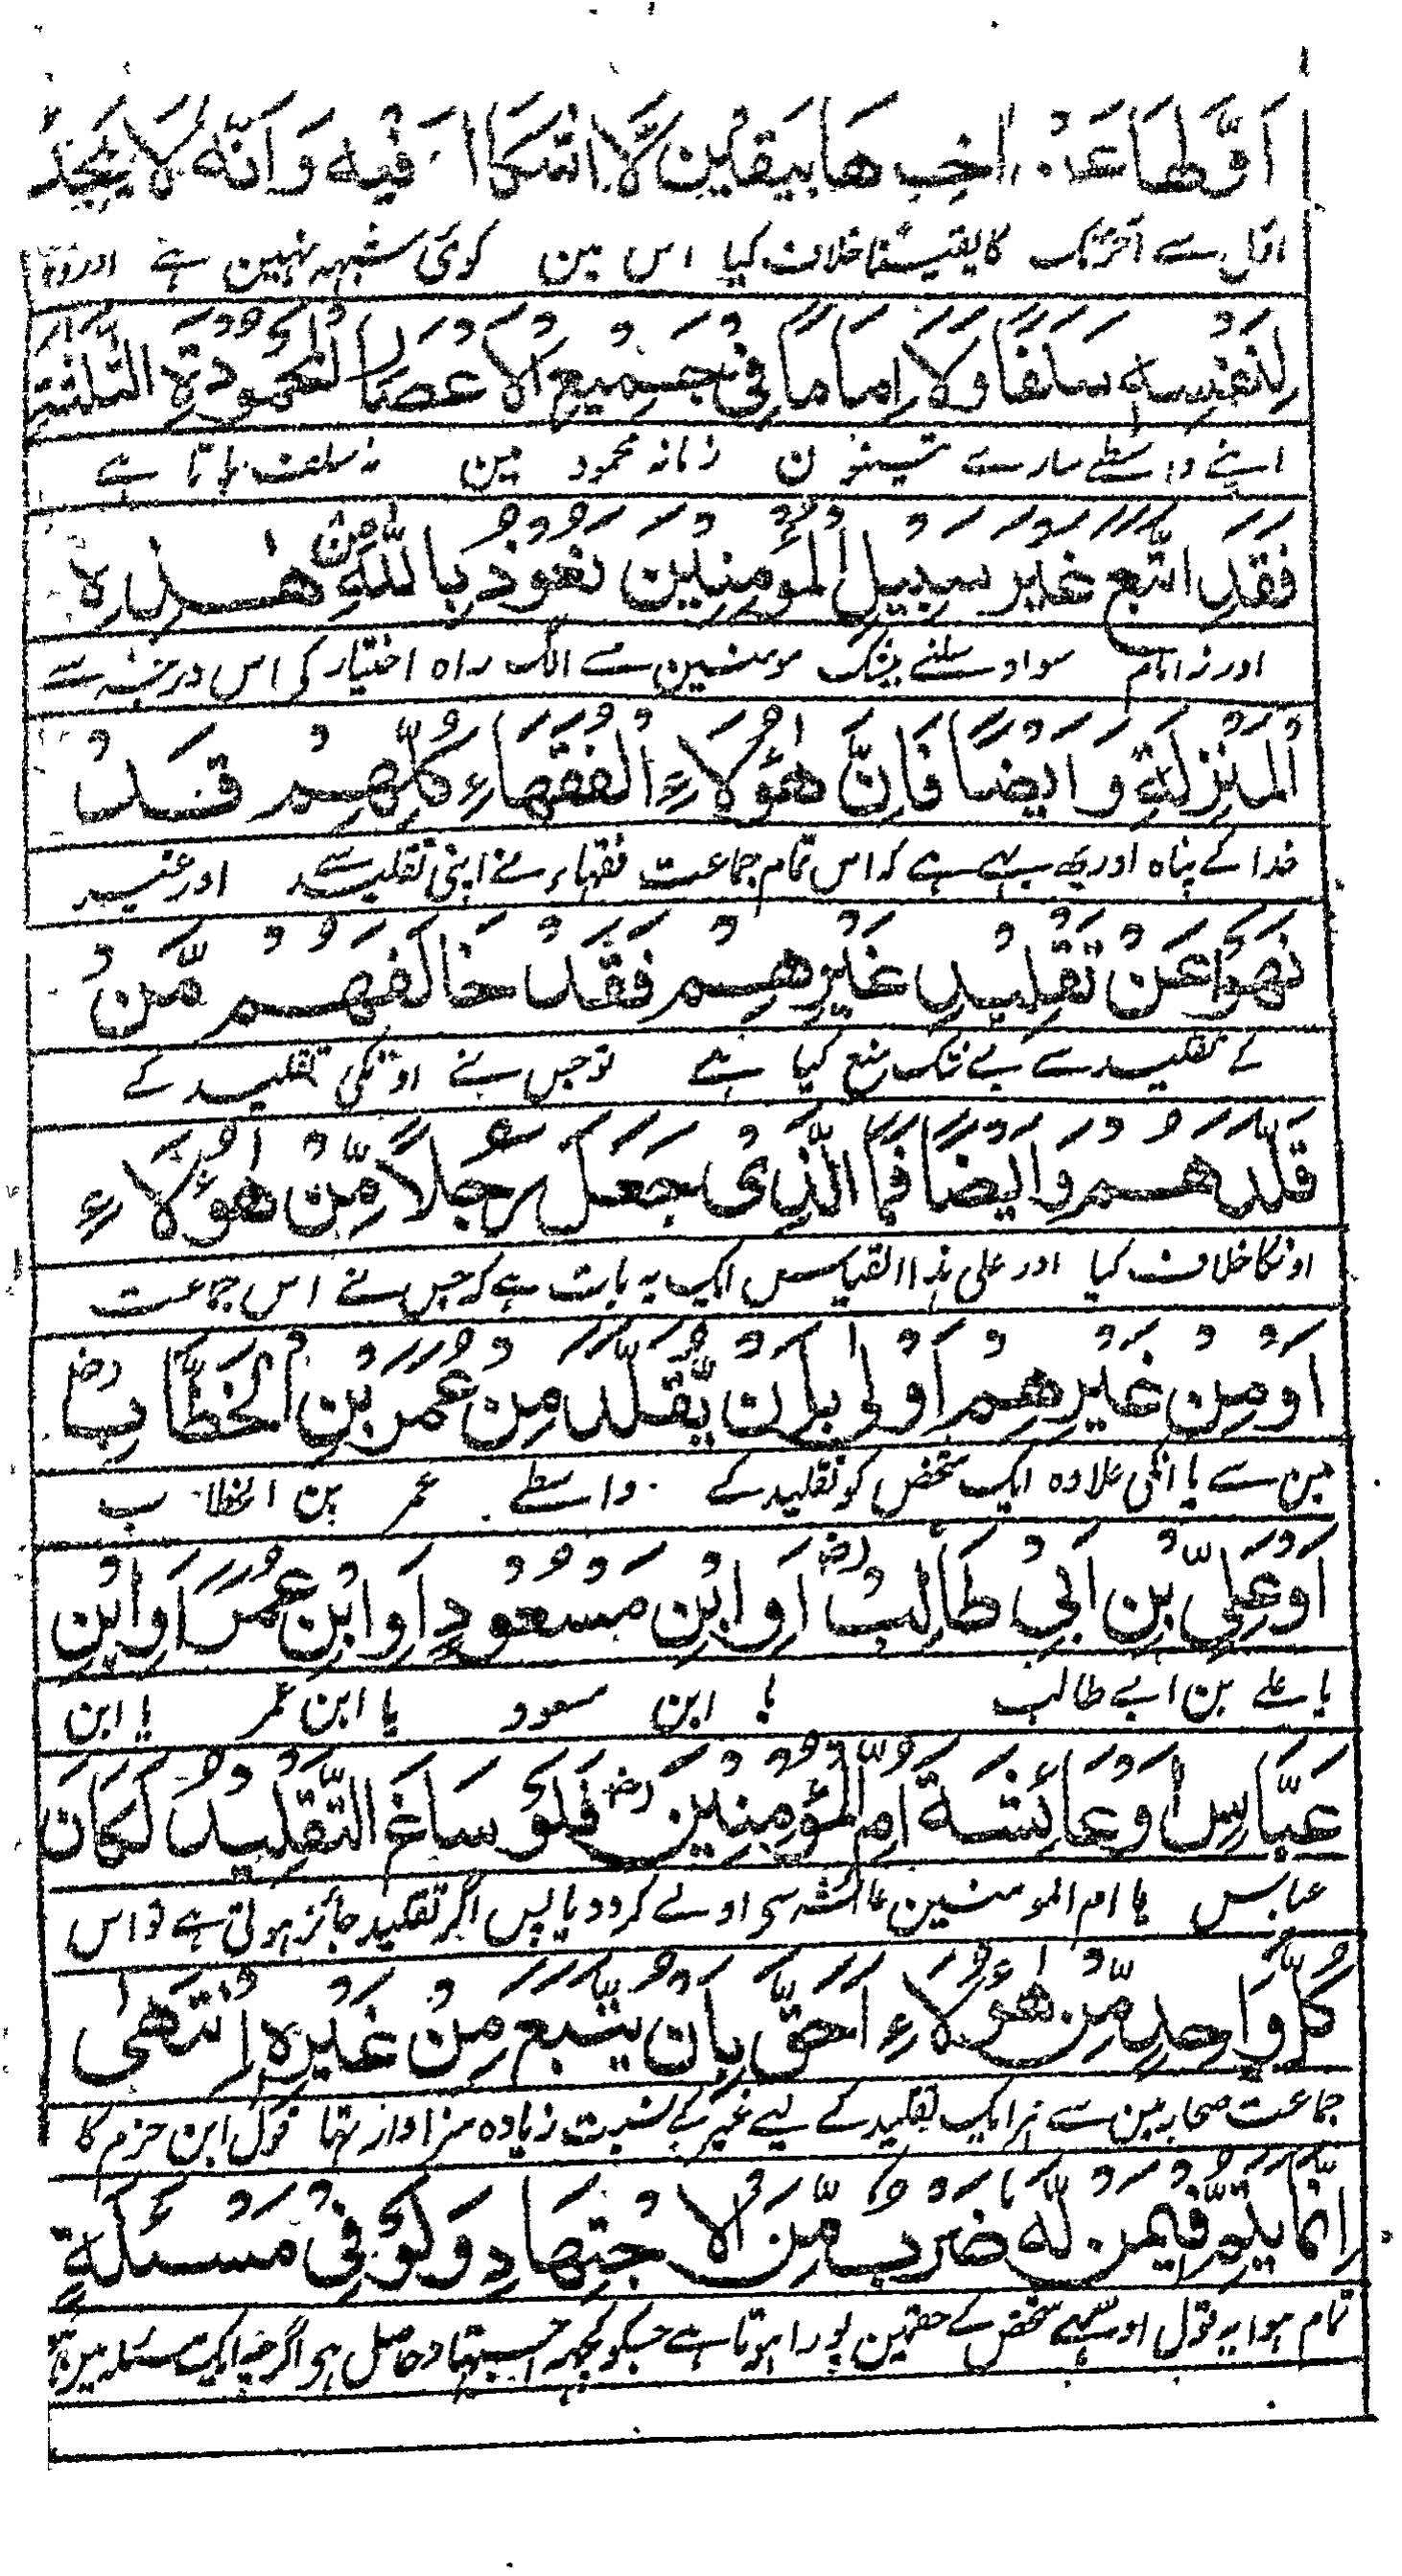 اَوَّلِهَا عَنْ اٰخِرِهَا بِيَقِيْنٍ لَّا اِشْكَالَ فِيْهِ وَاَنَّهٗ لَا يَجِدُ
اول سے آخر تک کا یقیناً خلاف کیا اس مین کوئی شبہہ نہین ہے اور وہ
لِنَفْسِهٖ سَلَفًا وَلَا اِمَامًا فِيْ جَمِيْعِ الْاَعْصَارِ الْمَحْمُوْدَةِ الثَّلٰثَةِ
اپنے واسطے سارے تینون زمانہ محمود مین نہ سلف پاتا ہے
فَقَدِ اتَّبَعَ غَيْرَ سَبِيْلِ الْمُؤْمِنِيْنَ نَعُوْذُ بِاللّٰهِ مِنْ هٰذِهِ
اور نہ امام سو اوسنے بیشک مومنین سے الگ راہ اختیار کی اس درجہ سے
الْمَنْزِلَةِ وَاَيْضًا فَاِنَّ هٰؤُلَاءِ الْفُقَهَاءِ كُلَّهُمْ قَدْ
خدا کے پناہ اور یہ بہی ہے کہ اس تمام جماعت فقہاء نے اپنی تقلید سے اور غیر
نَهَوْا عَنْ تَقْلِيْدِ غَيْرِهِمْ فَقَدْ خَالَفَهُمْ مَّنْ
کے تقلید سے بے شک منع کیا ہے تو جس نے اونکی تقلید کے
قَلَّدَهُمْ وَاَيْضًا فَمَا الَّذِىْ جَعَلَ رَجُلًا مِّنْ هٰؤُلَاءِ
اونکا خلاف کیا اور علی ہذا القیاس ایک یہ بات ہے کہ جس نے اس جماعت
اَوْ مِنْ غَيْرِهِمْ اَوْلٰى بِاَنْ يُّقَلَّدَ مِنْ عُمَرَ بْنِ الْخَطَّابِ رض
مین سے یا انکی علاوہ ایک شخص کو تقلید کے واسطے عمر بن الخطاب
اَوْ عَلِيِّ بْنِ اَبِيْ طَالِبٍ رض اَوِ ابْنِ مَسْعُوْدٍ اَوِ ابْنِ عُمَرَ اَوِ ابْنِ
یا علے بن ابے طالب یا ابن مسعود یا ابن عمر یا ابن
عَبَّاسٍ اَوْ عَائِشَةَ اُمِّ الْمُؤْمِنِيْنَ رض فَلَوْ سَاغَ التَّقْلِيْدُ لَكَانَ
عباس یا ام المومنین عائشہ سی اولے کر دیا پس اگر تقلید جائز ہوتی ہے تو اس
كُلُّ وَاحِدٍ مِّنْ هٰؤُلَاءِ اَحَقَّ بِاَنْ يُّتَّبَعَ مِنْ غَيْرِهٖ اِنْتَهٰى
جماعت صحابہ مین سے ہر ایک تقلید کے لیے غیر کے نسبت زیادہ سزاوار تہا قول ابن حزم کا
اِنَّمَا يَتِمُّ فِيْمَنْ لَهٗ ضَرْبٌ مِّنَ الْاِجْتِهَادِ وَلَوْ فِيْ مَسْئَلَةٍ
تمام ہوا یہ قول اوسے شخص کے حقمین پورا ہوتا ہے جسکو کچہہ اجتہاد حاصل ہو اگرچہ ایک مسئلہ مین